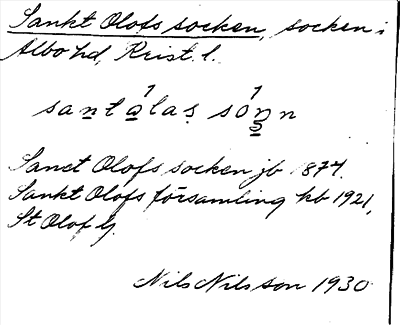 Sankt Olofs socken, socken i
Albo hd, Krist. l.
santalas són
Sanct Olofs socken jb 1877.
Sankt Olofs församling kb 1921,
St Olof
Nils Nilsson 1930